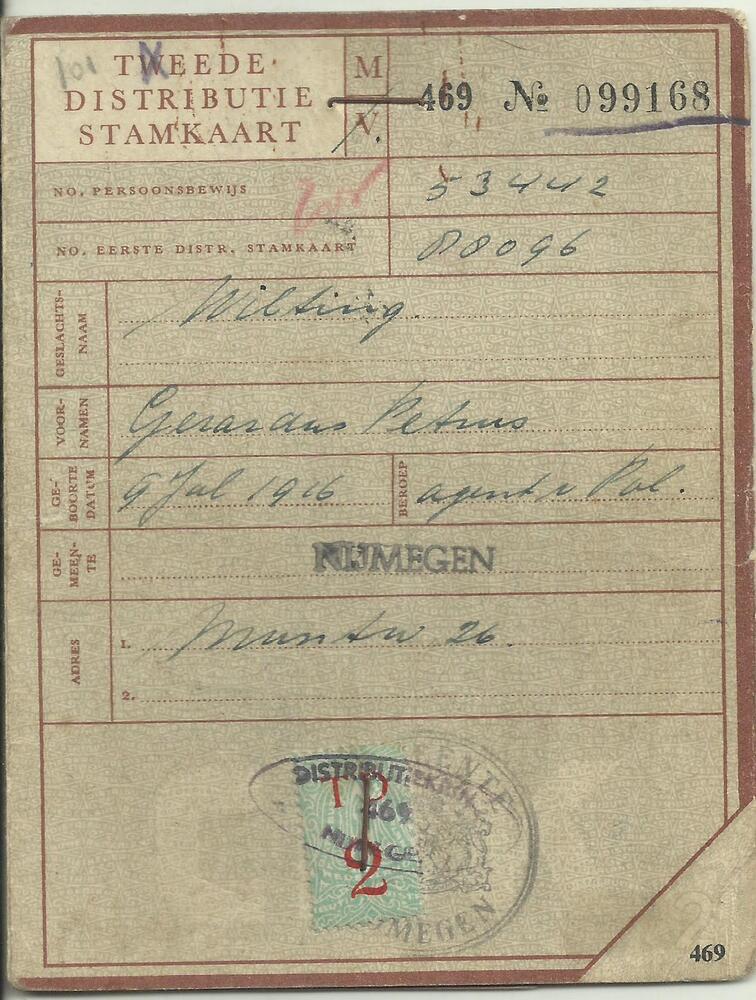 101
TWEEDE
DISTRIBUTIE
STAMKAART
M
V.
469 № 099168
NO. PERSOONSBEWIJS
53442
NO. EERSTE DISTR. STAMKAART
88096
GESLACHTS-
NAAM
Wilting.
VOOR-
NAMEN
Gerardus Petrus
GE-
BOORTE
DATUM
9 Jul 1916
BEROEP
agent v Pol.
GE-
MEEN-
TE
NIJMEGEN
ADRES
1.
26.
2.
DISTRIBUTIEKRING
469
NIJMEGEN
TD
2
GEMEENTE
NIJMEGEN
469